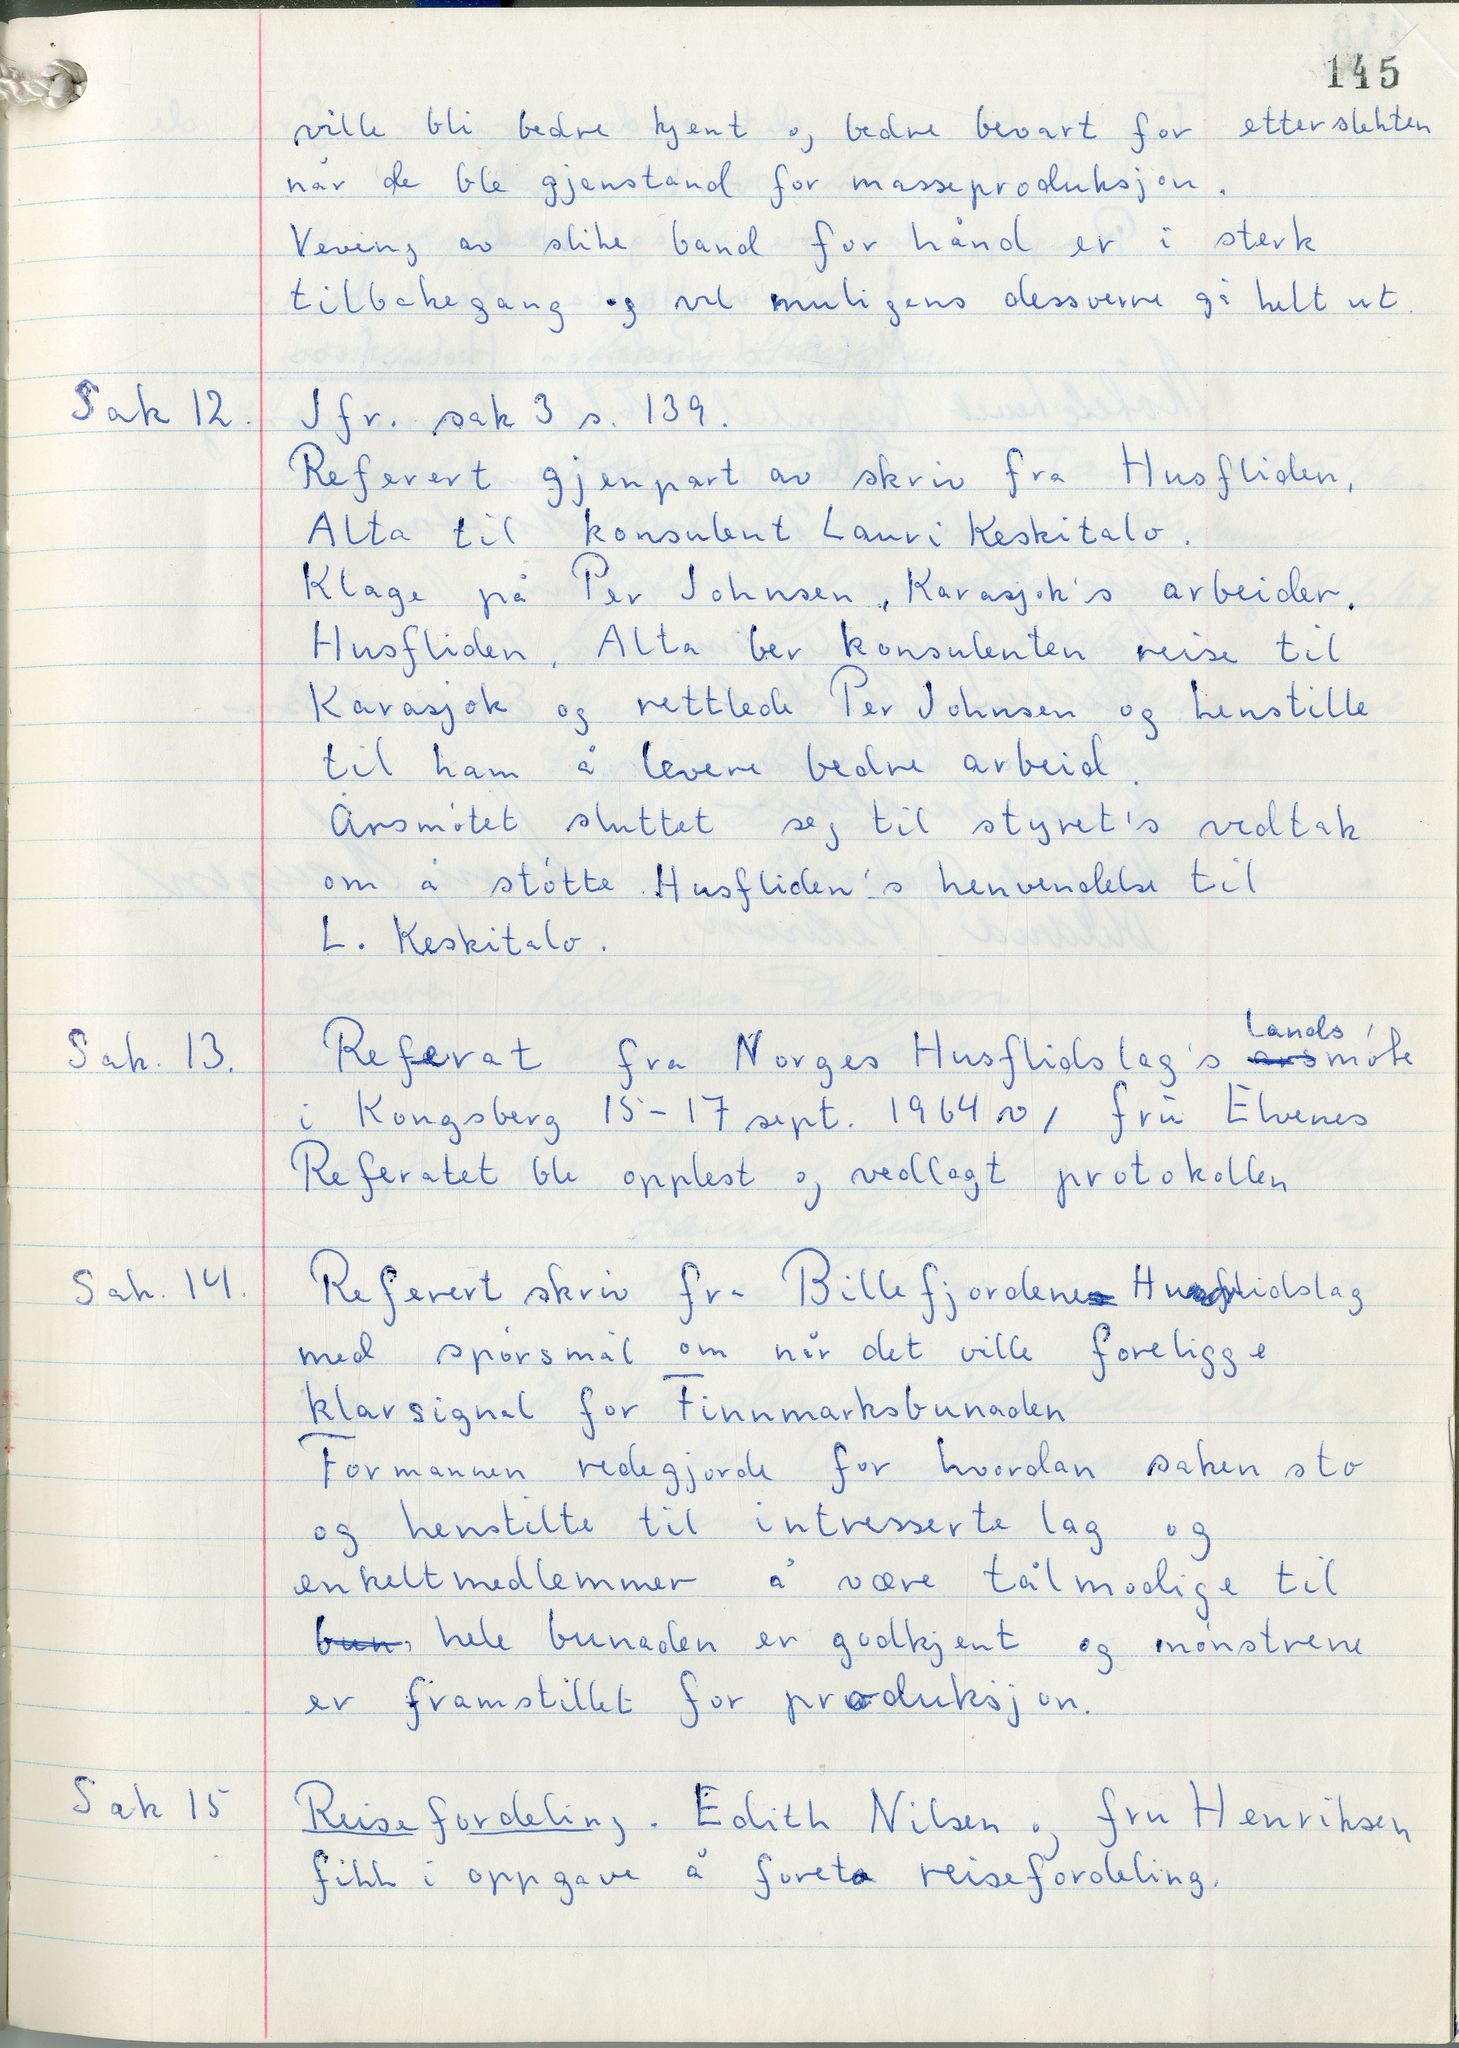 145
ville bli bedre kjent og bedre bevart for etterslekten
når de ble gjenstand for masseproduksjon.
Veving av slike band for hånd er i sterk
tilbakegang og vil muligens dessverre gå helt ut.
Sak 12. Jfr. sak 3 s. 139.
Referert gjenpart av skriv fra Husfliden,
Alta til konsulent Lauri Keskitalo.
Klage på Per Johnsen, Karasjok's arbeider.
Husfliden, Alta ber konsulenten reise til
Karasjok og rettlede Per Johnsen og henstille
til ham å levere bedre arbeid.
Årsmótet sluttet seg til styret's vedtak
om å stótte Husfliden's henvendelse til
L. Keskitalo.
Lands
Sak. 13. Referat fra Norges Husflidslag's årsmóte
i Kongsberg 15-17 sept. 1964 v/ fru Elvenes
Referatet ble opplest og vedlagt protokollen
Sak. 14. Referert skriv fra Billefjorden Husflidslag
med spórsmål om når det ville foreligge
klarsignal for Finnmarksbunaden
Formannen redegjorde for hvordan saken sto
og henstilte til intresserte lag og
enkeltmedlemmer å være tålmodige til
bun, hele bunaden er godkjent og mónstrene
er framstillet for produksjon.
Sak 15 Reisefordeling. Edith Nilsen og fru Henriksen
fikk i oppgave å foreta reisefordeling.